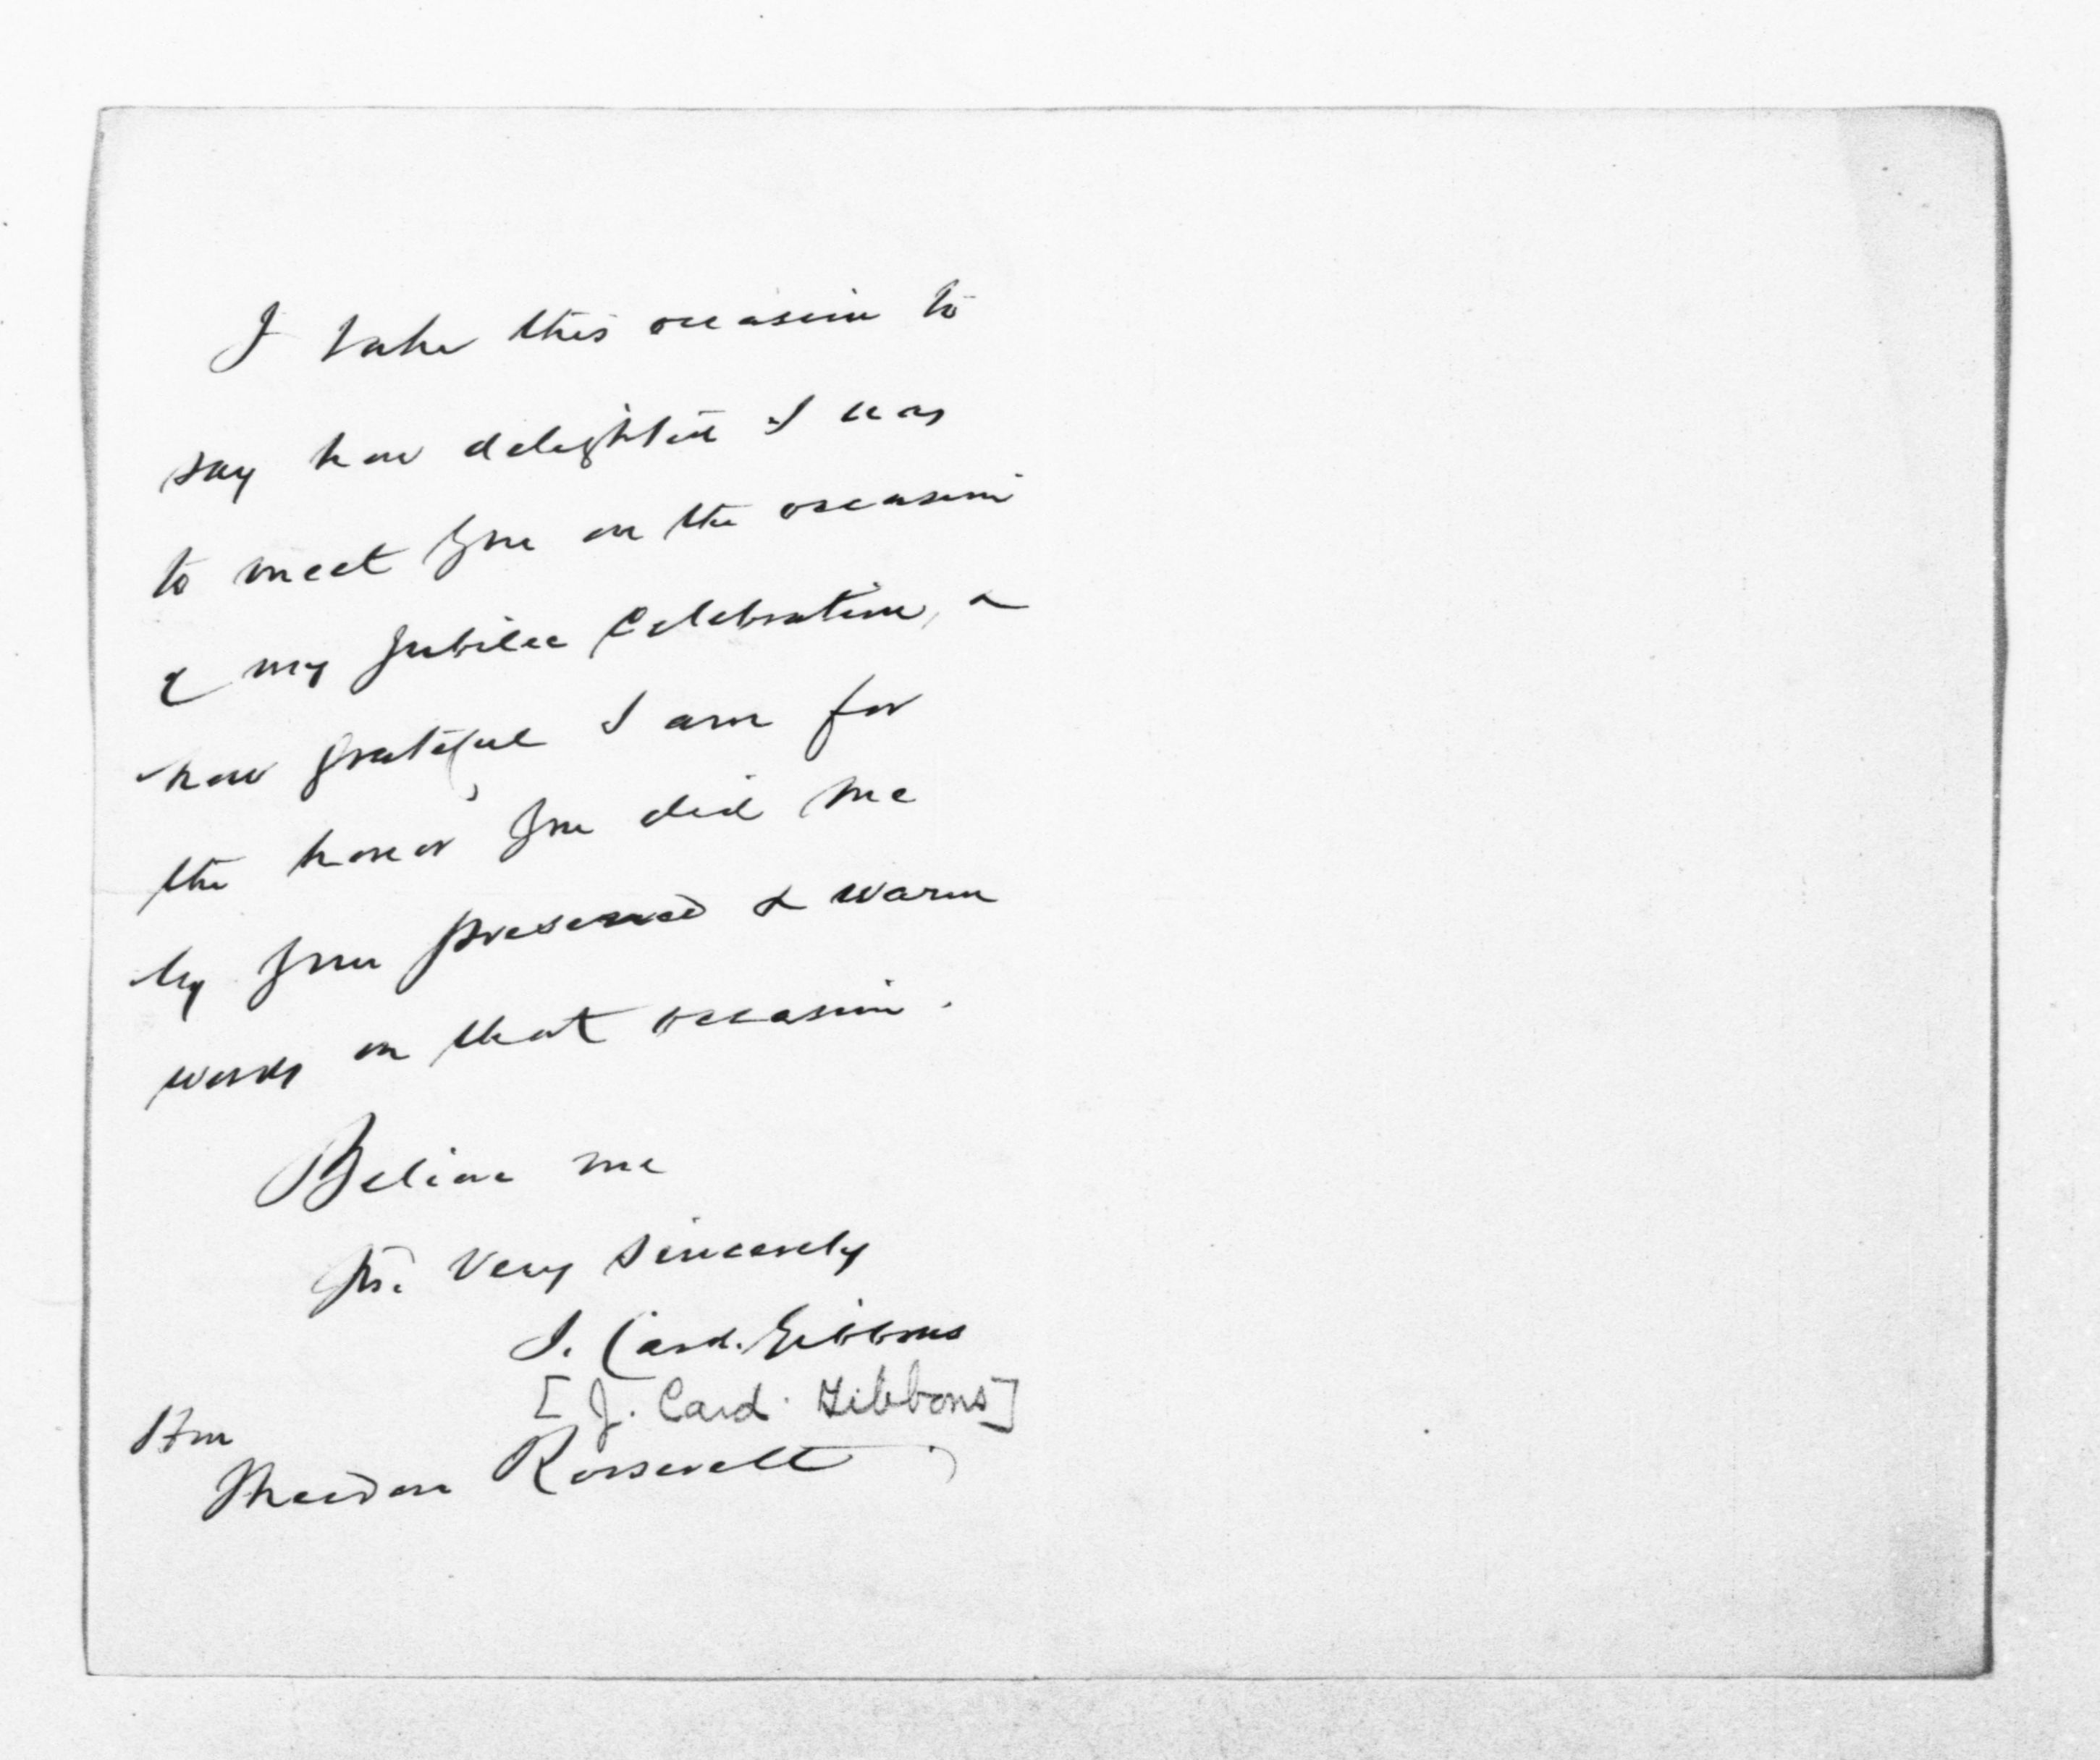 I take this occasion to
say how delighted I was
to meet you on the occasion
of my Jubilee Celebration, &
how grateful I am for
the honor you did me
by your presence & warm
words on that occasion.
Believe me
Yrs. Very Sincerely
J. Card. Gibbons
[J. Card. Gibbons]
Hon
Theodore Roosevelt